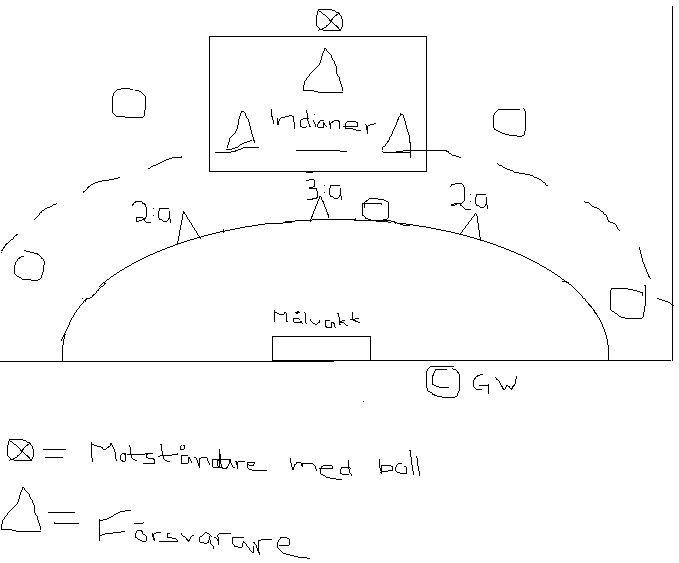 Indianer
2:a
3:a
2:a
Målvakt
C GW
= Motståndre med boll
= Försvarare